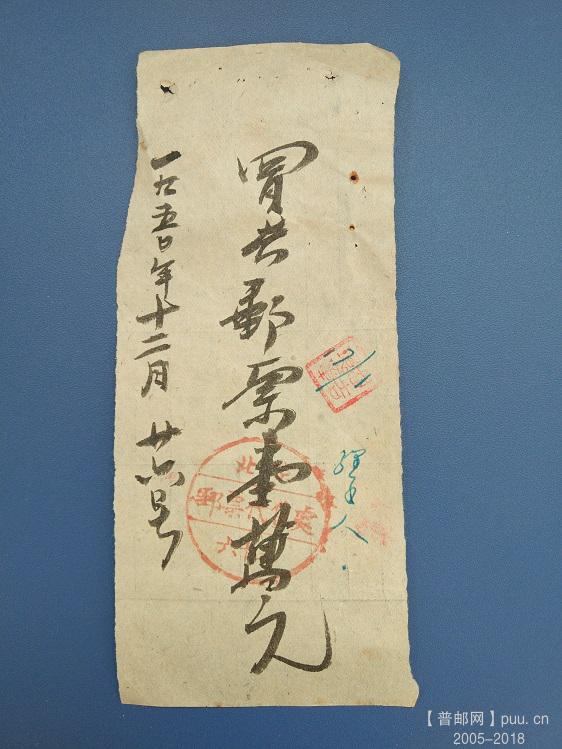 經手人
買去郵票壹萬元
一九五〇年十二月廿六号
【普邮网】puu.cn
2005-2018